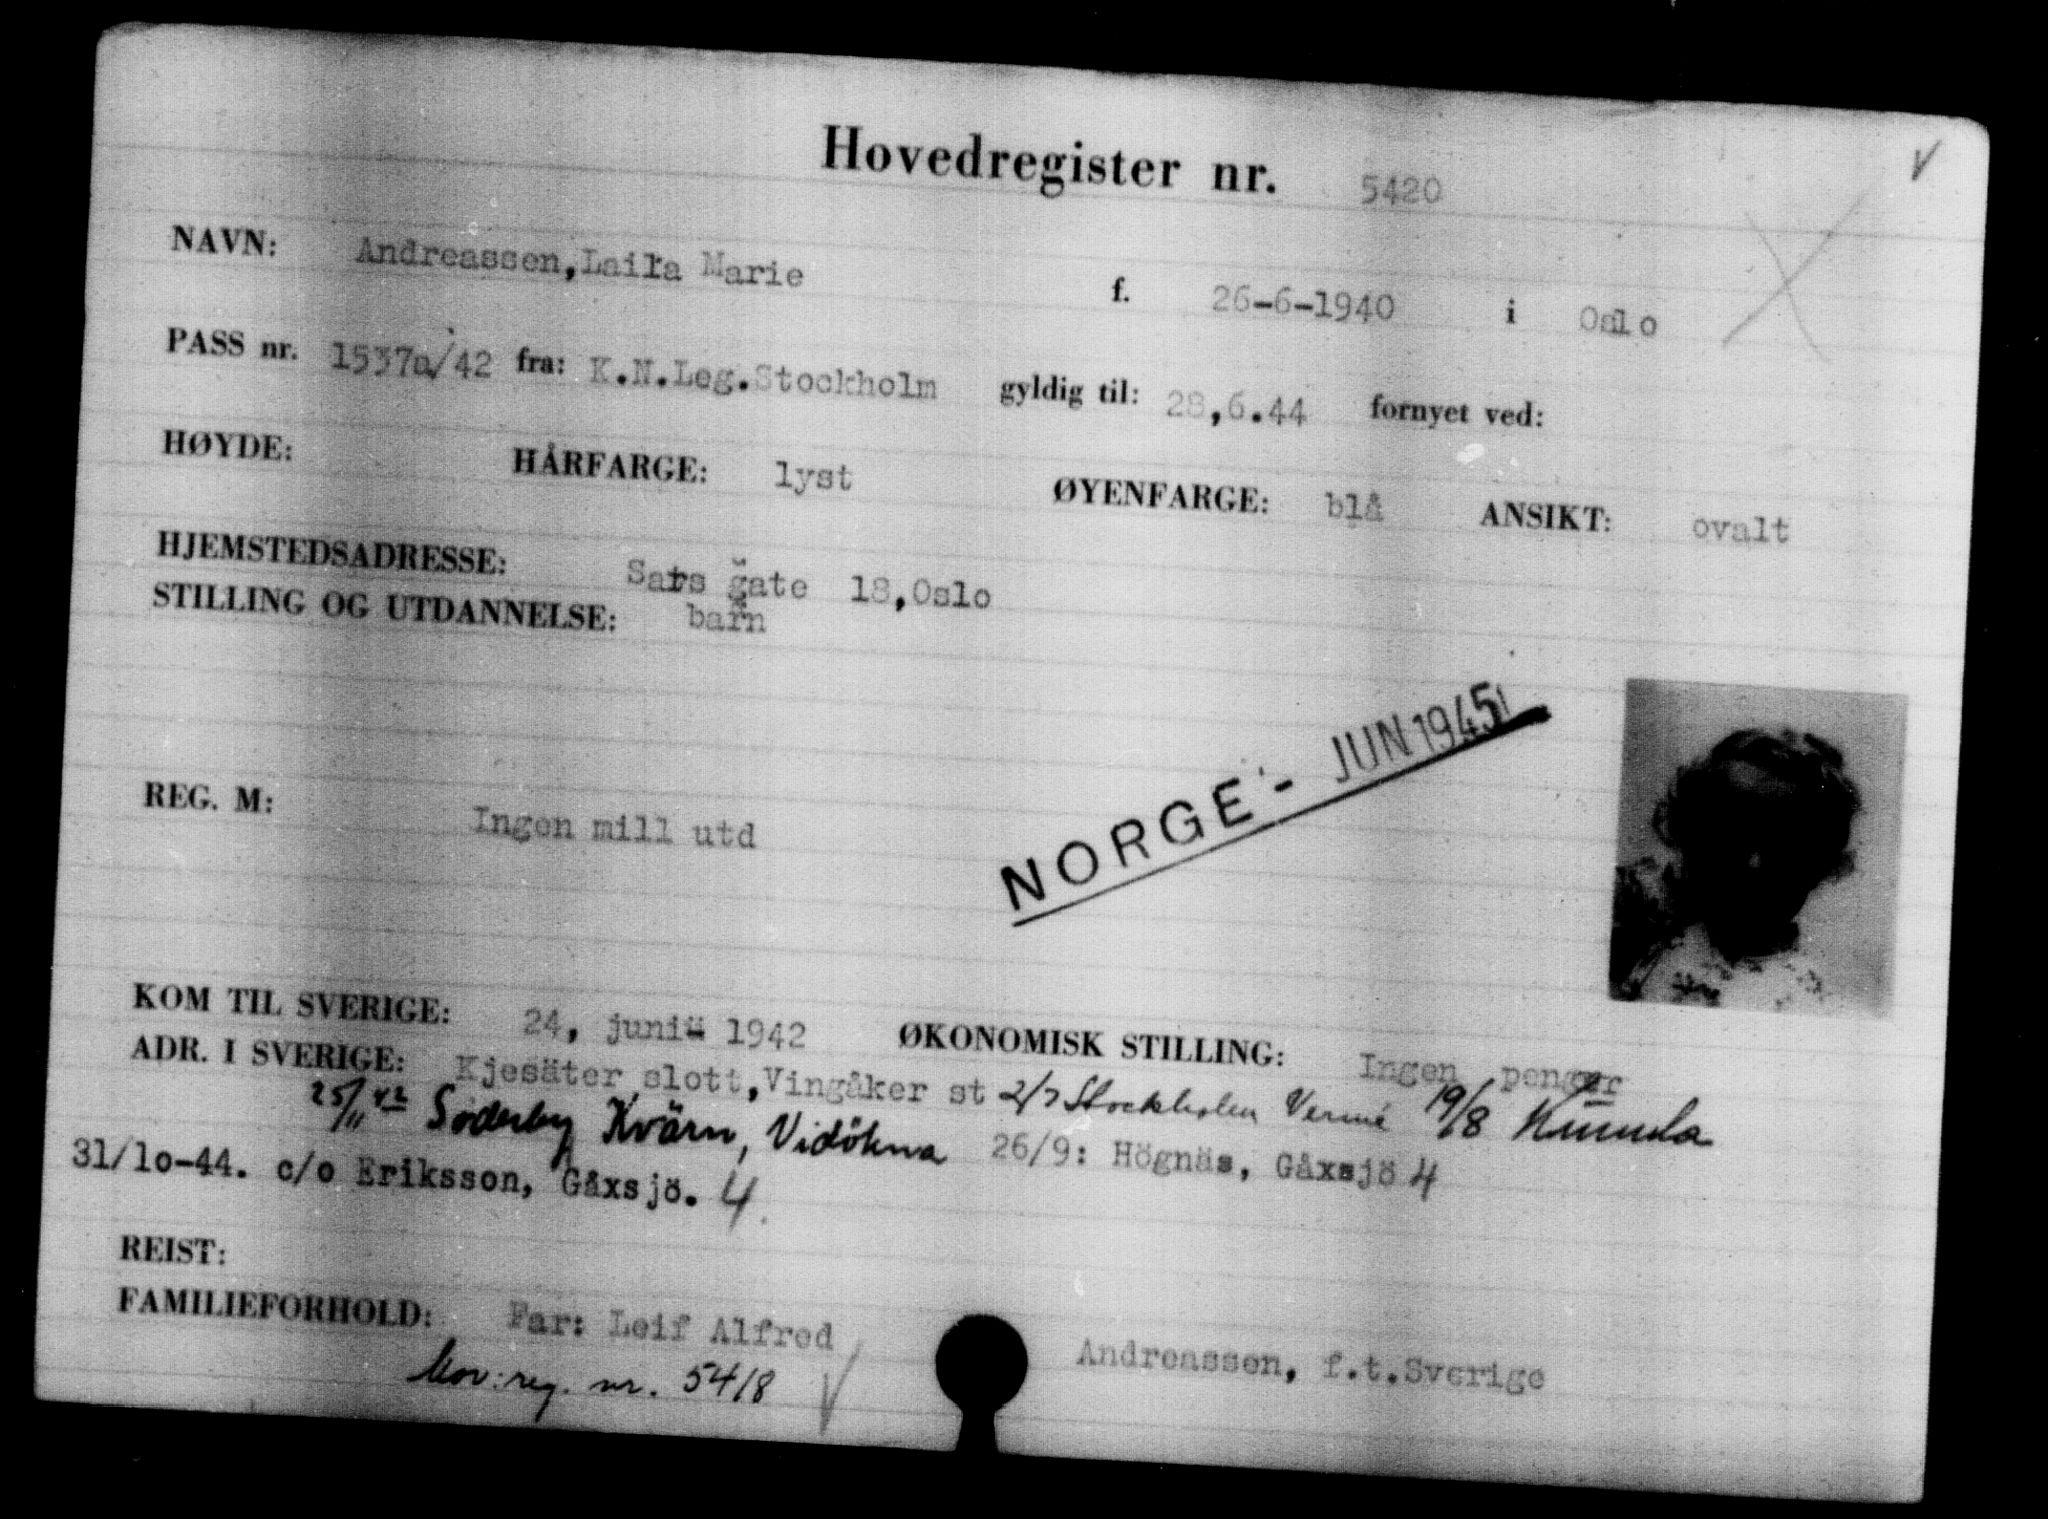 Hovedregister nr. 5420
NAVN: Andreassen, Laila Marie f. 26-6-1940 i Oslo
PASS nr. 1537a/42 fra: K.N.Leg.Stockholm gyldig til: 28,6.44 fornyet ved:
HØYDE: HÅRFARGE: lyst ØYENFARGE: blå ANSIKT: ovalt
HJEMSTEDSADRESSE: Sars gate 18, Oslo
STILLING OG UTDANNELSE: barn
NORGE - JUN 1945
REG. M: Ingen mill utd
KOM TIL SVERIGE: 24, juni 1942 ØKONOMISK STILLING: Ingen penger
ADR. I SVERIGE: Kjesäter slott, Vingåker st 2/7 Stockholm 19/8 Kumla
25/11 42 Söderby Kvärn, Vidökna 26/9: Högnäs, Gåxsjö 4
31/10-44. c/o Eriksson, Gåxsjö. 4
REIST:
FAMILIEFORHOLD: Far: Leif Alfred Andreassen, f.t.Sverige
Mor: reg. nr. 5418